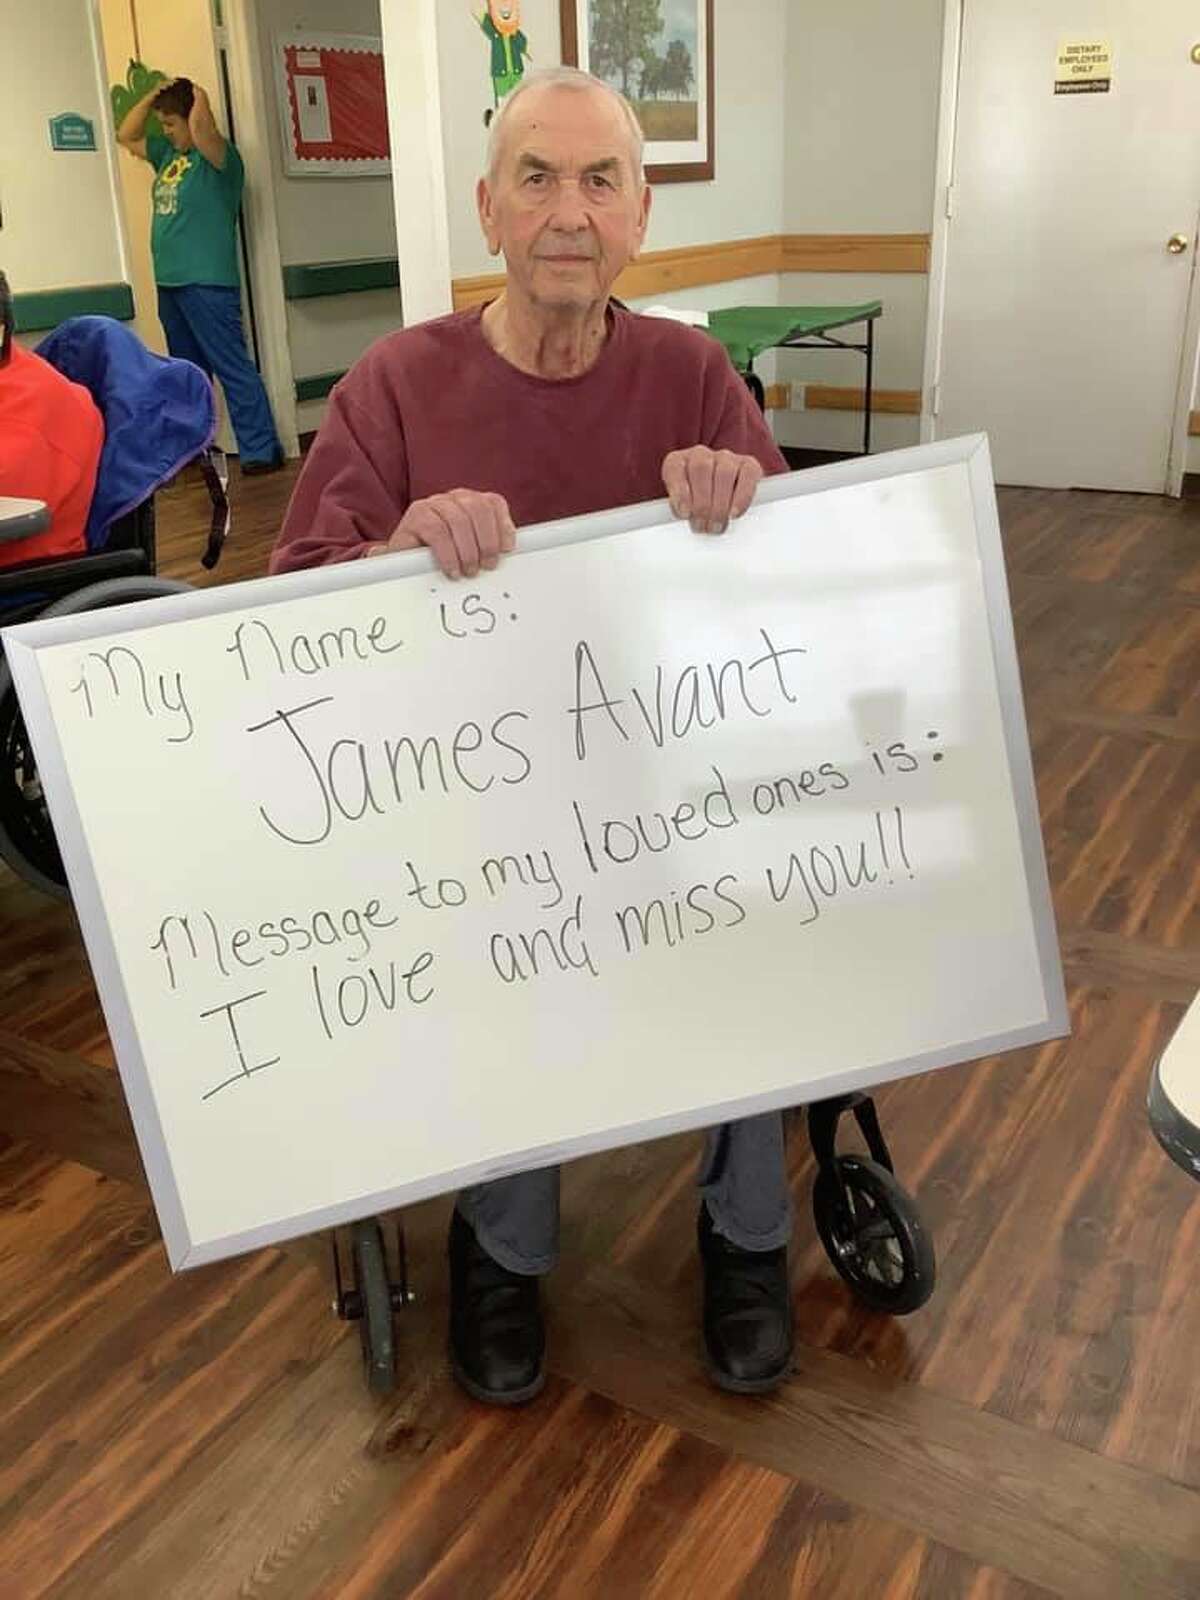 My Name is:
James Avant
Message to my loved ones is:
I love and miss you!!
DIETARY
EMPLOYEES
ONLY
Employees Only